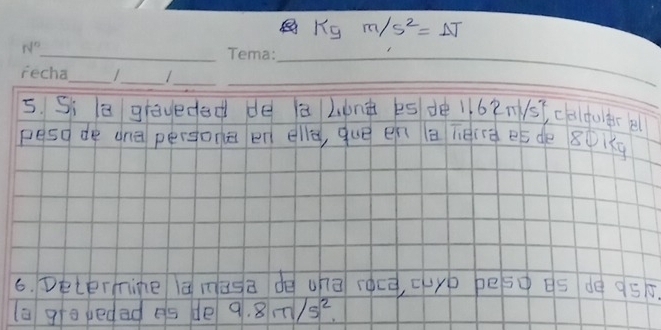 Kg m/s² = N
N°
Tema:
fecha / /
5. Si la gravedad de la Luna es de 1.62 m/s², calcular el
peso de una persona en ella, que en la Tierra es de 80 Kg
6. Determine la masa de una roca, cuyo peso es de 95N.
la gravedad es de 9.8 m/s².